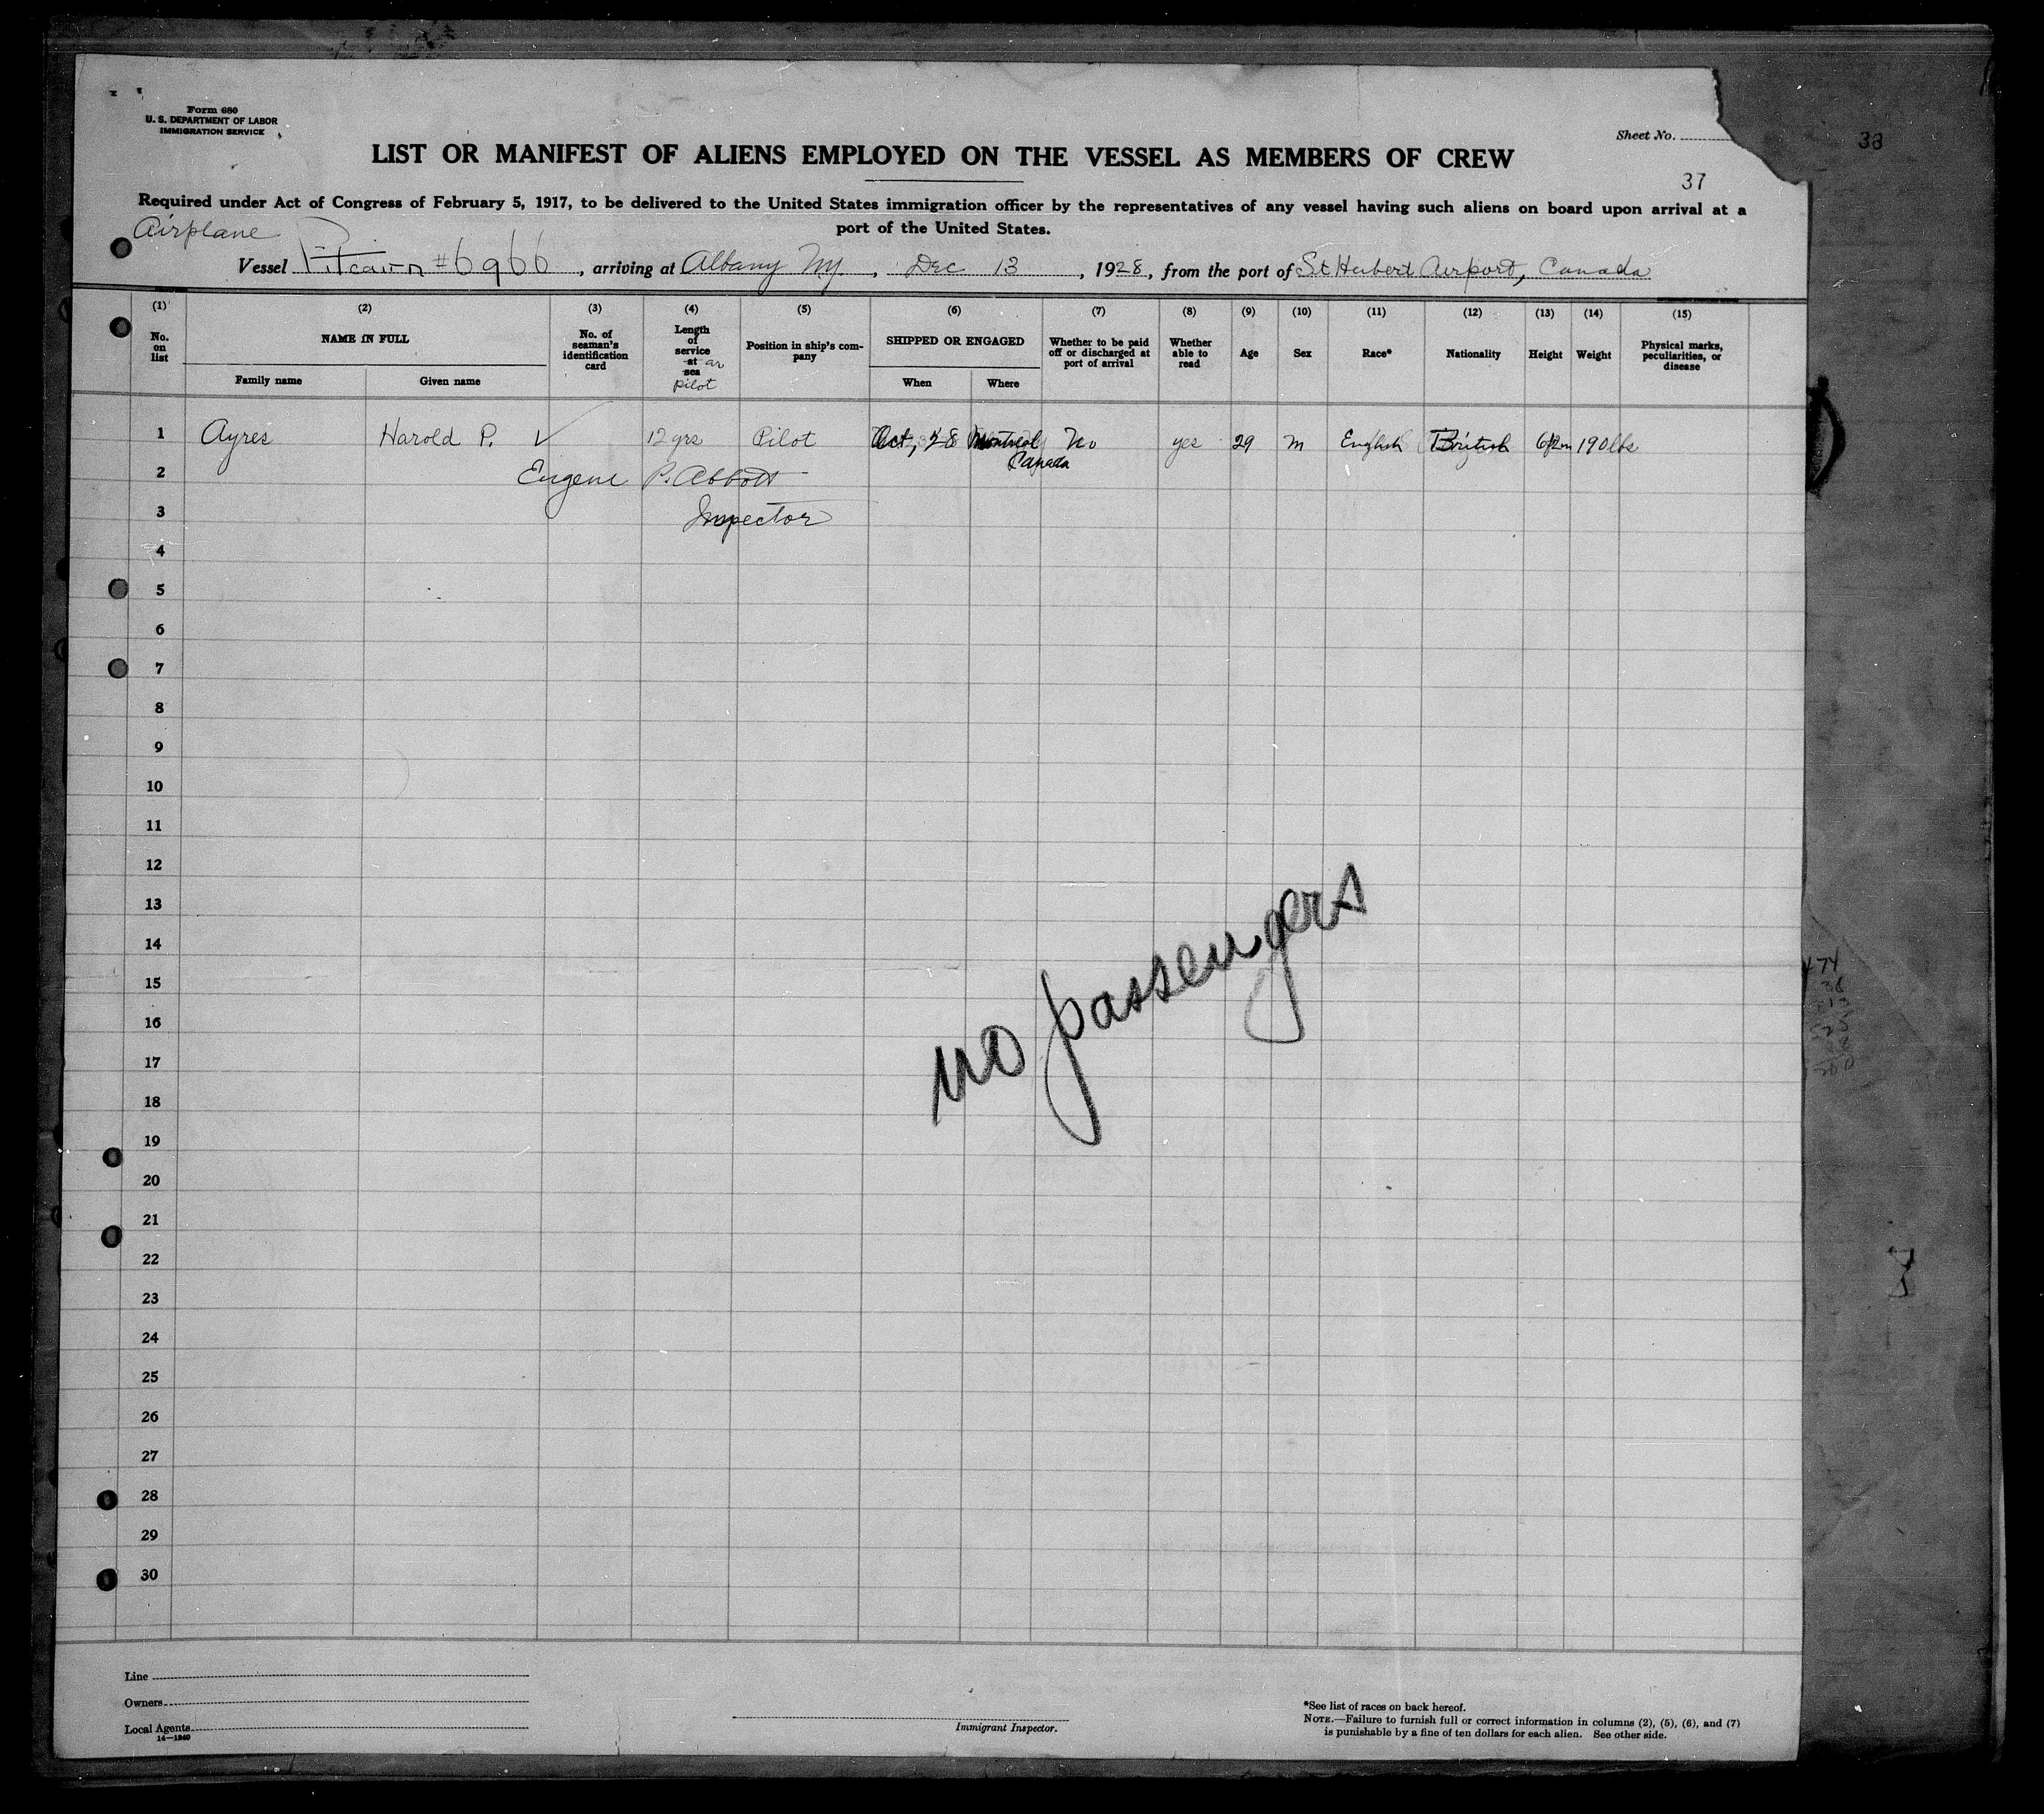 Form 680
U. S. DEPARTMENT OF LABOR
IMMIGRATION SERVICE
Sheet No.
38
LIST OR MANIFEST OF ALIENS EMPLOYED ON THE VESSEL AS MEMBERS OF CREW
37
Required under Act of Congress of February 5, 1917, to be delivered to the United States immigration officer by the representatives of any vessel having such aliens on board upon arrival at a
port of the United States.
Airplane
Vessel Pitcairn #6966, arriving at Albany N.Y., Dec 13, 1928, from the port of St Hubert Airport, Canada
(1) (2) (3) (4) (5) (6) (7) (8) (9) (10) (11) (12) (13) (14) (15)
No. on list NAME IN FULL Family name Given name No. of seaman's identification card Length of service at sea pilot Position in ship's company SHIPPED OR ENGAGED When Where Whether to be paid off or discharged at port of arrival Whether able to read Age Sex Race* Nationality Height Weight Physical marks, peculiarities, or disease
1 Ayres Harold P. 12 yrs Pilot Oct, 28 Montreal Canada No yes 29 M English British 190 lbs
2 Eugene P. Abbott
3 Inspector
4
5
6
7
8
9
10
11
12
13
14
15
16
17
18
19
20
21
22
23
24
25
26
27
28
29
30
no passengers
Line
Owners
Local Agents
14—1240
Immigrant Inspector.
*See list of races on back hereof.
NOTE.—Failure to furnish full or correct information in columns (2), (5), (6), and (7)
is punishable by a fine of ten dollars for each alien. See other side.